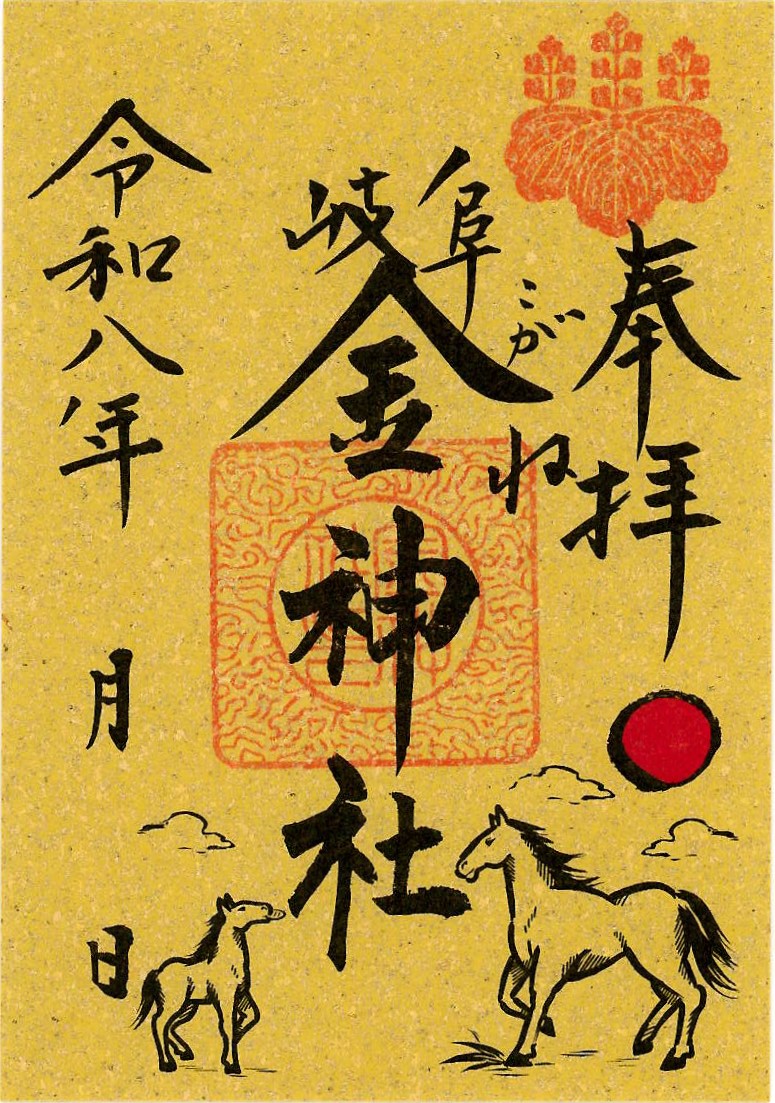 奉拝
岐阜
こがね
金神社
令和八年 月 日